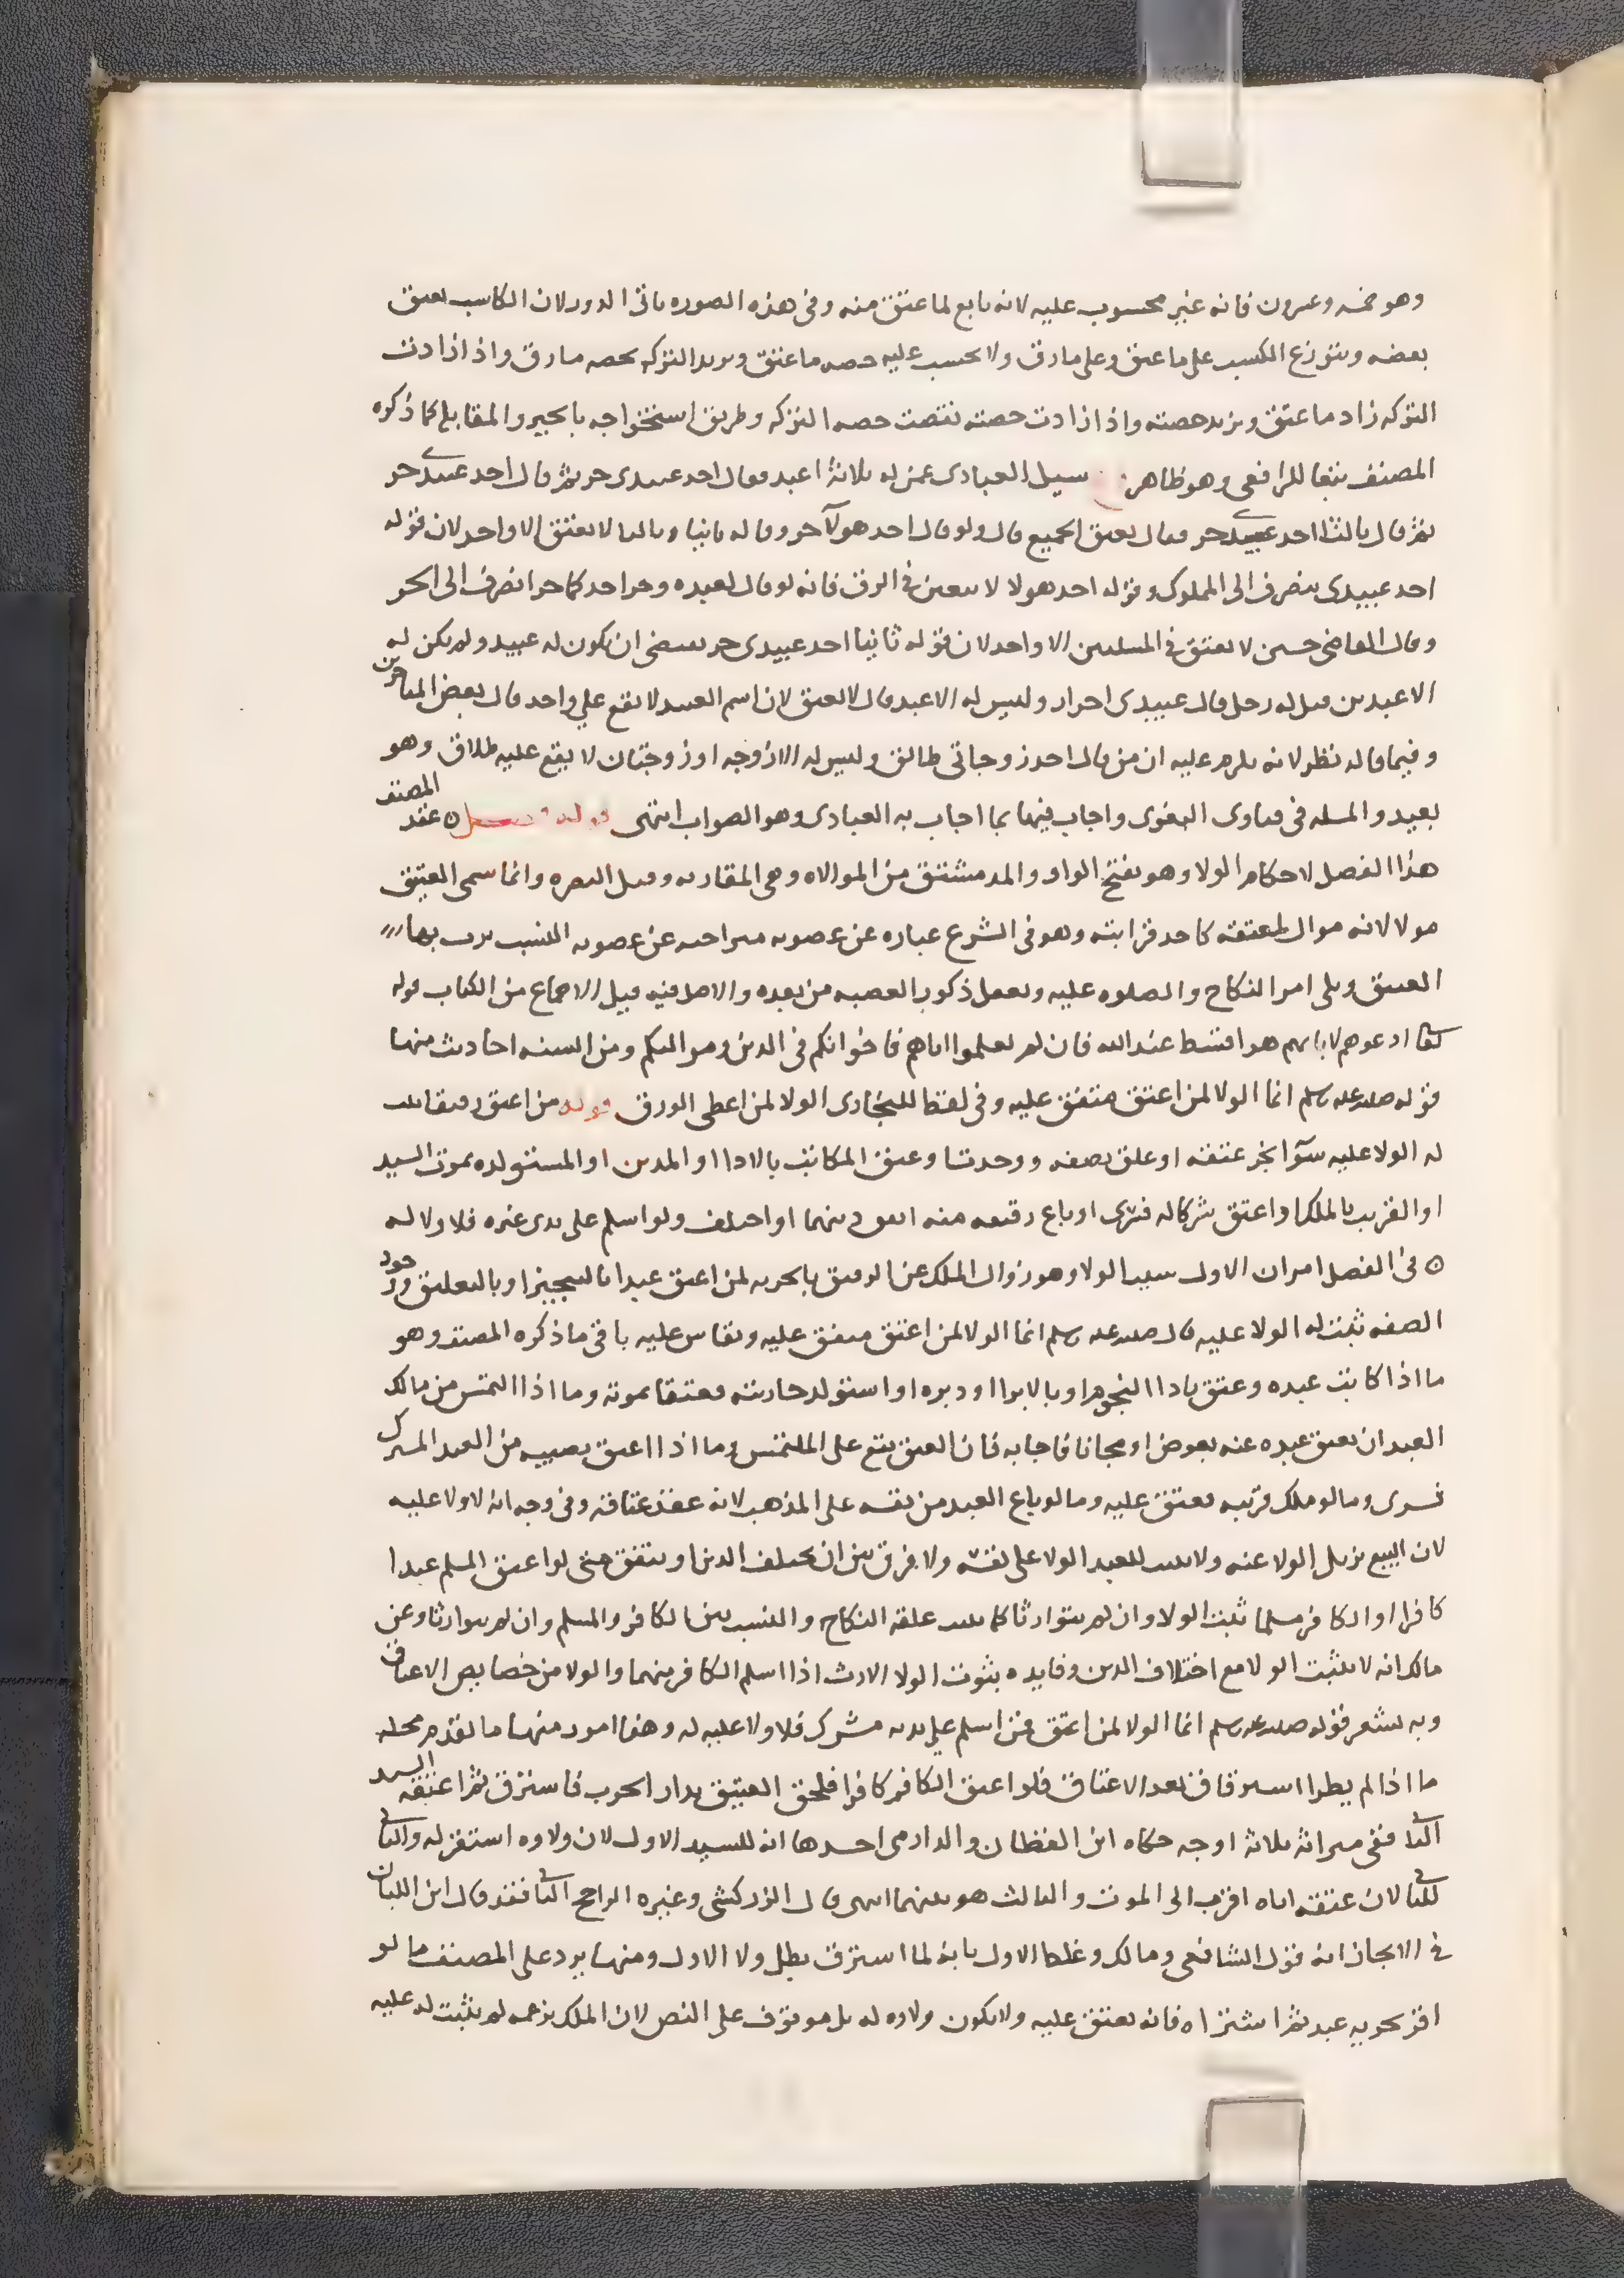 وهو خمسه وعسرون فانه غير محسوب عليه لانه تابع لما عتق منه وفى هذه الصوره ياتى الدور لان الكاسب يعتق
بعضه ويتوزع الكسب على ما عتق وعلى ما رق ولا يحسب عليه حصه ما عتق وتزيد التركه بحصه ما رق واذا زادت
التركه زاد ما عتق وتزيد حصته واذا زادت حصته نقصت حصه التركه وطريق استخراجه بالجبر والمقابله كما ذكره
المصنف تبعا للرافعى وهو ظاهر سيل العبادى عمن له ثلاثة اعبد فقال احد عبيدى حر ثم قال احد عبيدى حر
ثم قال ثالثا احد عبيدى حر فقال يعتق الجميع قال ولو قال احد هولآ حر وقاله ثانيا وثالثا لا يعتق الا واحد لان قوله
احد عبيدى ينصرف الى المملوك وقوله احد هولا لا يتعين فى الرق فانه لو قال لعبده وحر احدكما حر انصرف الى الحر
وقال القاضى حسين لا يعتق فى المسلتين الا واحد لان قوله ثانيا احد عبيدى حر يقتضى ان يكون له عبيد ولم يكن له
الا عبدين قيل له رجل قال عبيدى احرار وليس له الا عبد قال لا يعتق لان اسم العبيد لا يقع على واحد قال بعض المتاخرين
وفيما قاله نظر لانه يلزم عليه ان من قال احد زوجاتى طالق وليس له الا زوجه او زوجتان لا يقع عليه طلاق وهو
بعيد والمسله فى فتاوى البغوى واجاب فيها بما اجاب به العبادى وهو الصواب انتهى قوله فصل ه عقد المصنف
هذا الفصل لاحكام الولا وهو بفتح الواو والمد مشتق من الموالاه وهى المقاربه وقيل النصره وانما سمى العتيق
مولا لانه موال لمعتقه كاحد قرابته وهو فى الشرع عباره عن عصوبه متراخيه عن عصوبه النسب يرث بها
العتيق ويلى امر النكاح والصلوه عليه ويعقل ذكور العصبه من بعده والاصل فيه قبل الاجماع من الكتاب قوله
تعالى ادعوهم لابايهم هو اقسط عند الله فان لم تعلموا اباهم فاخوانكم فى الدين ومواليكم ومن السنه احاديث منها
قوله صلى الله عليه وسلم انما الولا لمن اعتق متفق عليه وفى لفظ للبخارى الولا لمن اعطى الورق قوله من اعتق رقيقا ثبت
له الولا عليه سوآ نجز عتقه او علق بصفه ووجدت او عتق المكاتب بالادا او المدبر او المستولده بموت السيد
او القريب بالملك او اعتق شركا له فسرى او باع رقيقه منه اتفق دينهما او اختلف ولو اسلم على يدى غيره فلا ولا له
ه فى الفصل امران الاول سبب الولا وهو زوال الملك عن الرقيق بالحريه لمن اعتق عبدا بالتنجيز او بالتعليق ووجود
الصفه ثبت له الولا عليه قال صلى الله عليه وسلم انما الولا لمن اعتق متفق عليه ويقاس عليه باقى ما ذكره المصنف وهو
ما اذا كاتب عبده وعتق بادا النجوم او بالابرا او دبره او استولد جاريته فعتقا بموته وما اذا التمس من مالك
العبد ان يعتق عبده عنه بعوض او مجانا فاجابه فان العتق يقع على الملتمس وما اذا اعتق نصيبه من العبد المشترك
فسرى وما لو ملك قريبه فعتق عليه وما لو باع العبد من نفسه على المذهب لانه عقد عتاقه وفى وجه انه لا ولا عليه
لان البيع يزيل الولا عنه ولا يثبت للعبد الولا على نفسه ولا فرق بين ان يختلف الدين او يتفق حتى لو اعتق المسلم عبدا
كافرا او الكافر مسلما ثبت الولا وان لم يتوارثا كما يثبت علقة النكاح والنسب بين الكافر والمسلم وان لم يتوارثا وعن
مالك انه لا يثبت الولا مع اختلاف الدين وفايده ثبوت الولا الارث اذا اسلم الكافر منهما والولا من خصايص الاعتاق
وبه يشعر قوله صلى الله عليه وسلم انما الولا لمن اعتق فمن اسلم على يديه مشرك فلا ولا عليه له وهنا امور منها ما تقدم محله
ما اذا لم يطرا استرقاق بعد الاعتاق فلو اعتق الكافر كافرا فلحق العتيق بدار الحرب فاسترق ثم اعتقه السيد
الثانى ففى ميراثه ثلاثة اوجه حكاه ابن القطان والدارمى احدها انه للسيد الاول لان ولاوه استقر له والثانى
للثانى لان عتقه اياه اقرب الى الموت والثالث هو بينهما انتهى قال الزركشى وغيره الراجح الثانى فقد قال ابن اللبان
فى الايجاز انه قول الشافعى ومالك وغلط الاول بانه لما استرق بطل ولا الاول ومنها يرد على المصنف ما لو
اقر بحريه عبد ثم اشتراه فانه يعتق عليه ولا يكون ولاوه له بل موقوف على النص لان الملك بزعمه لم يثبت له عليه